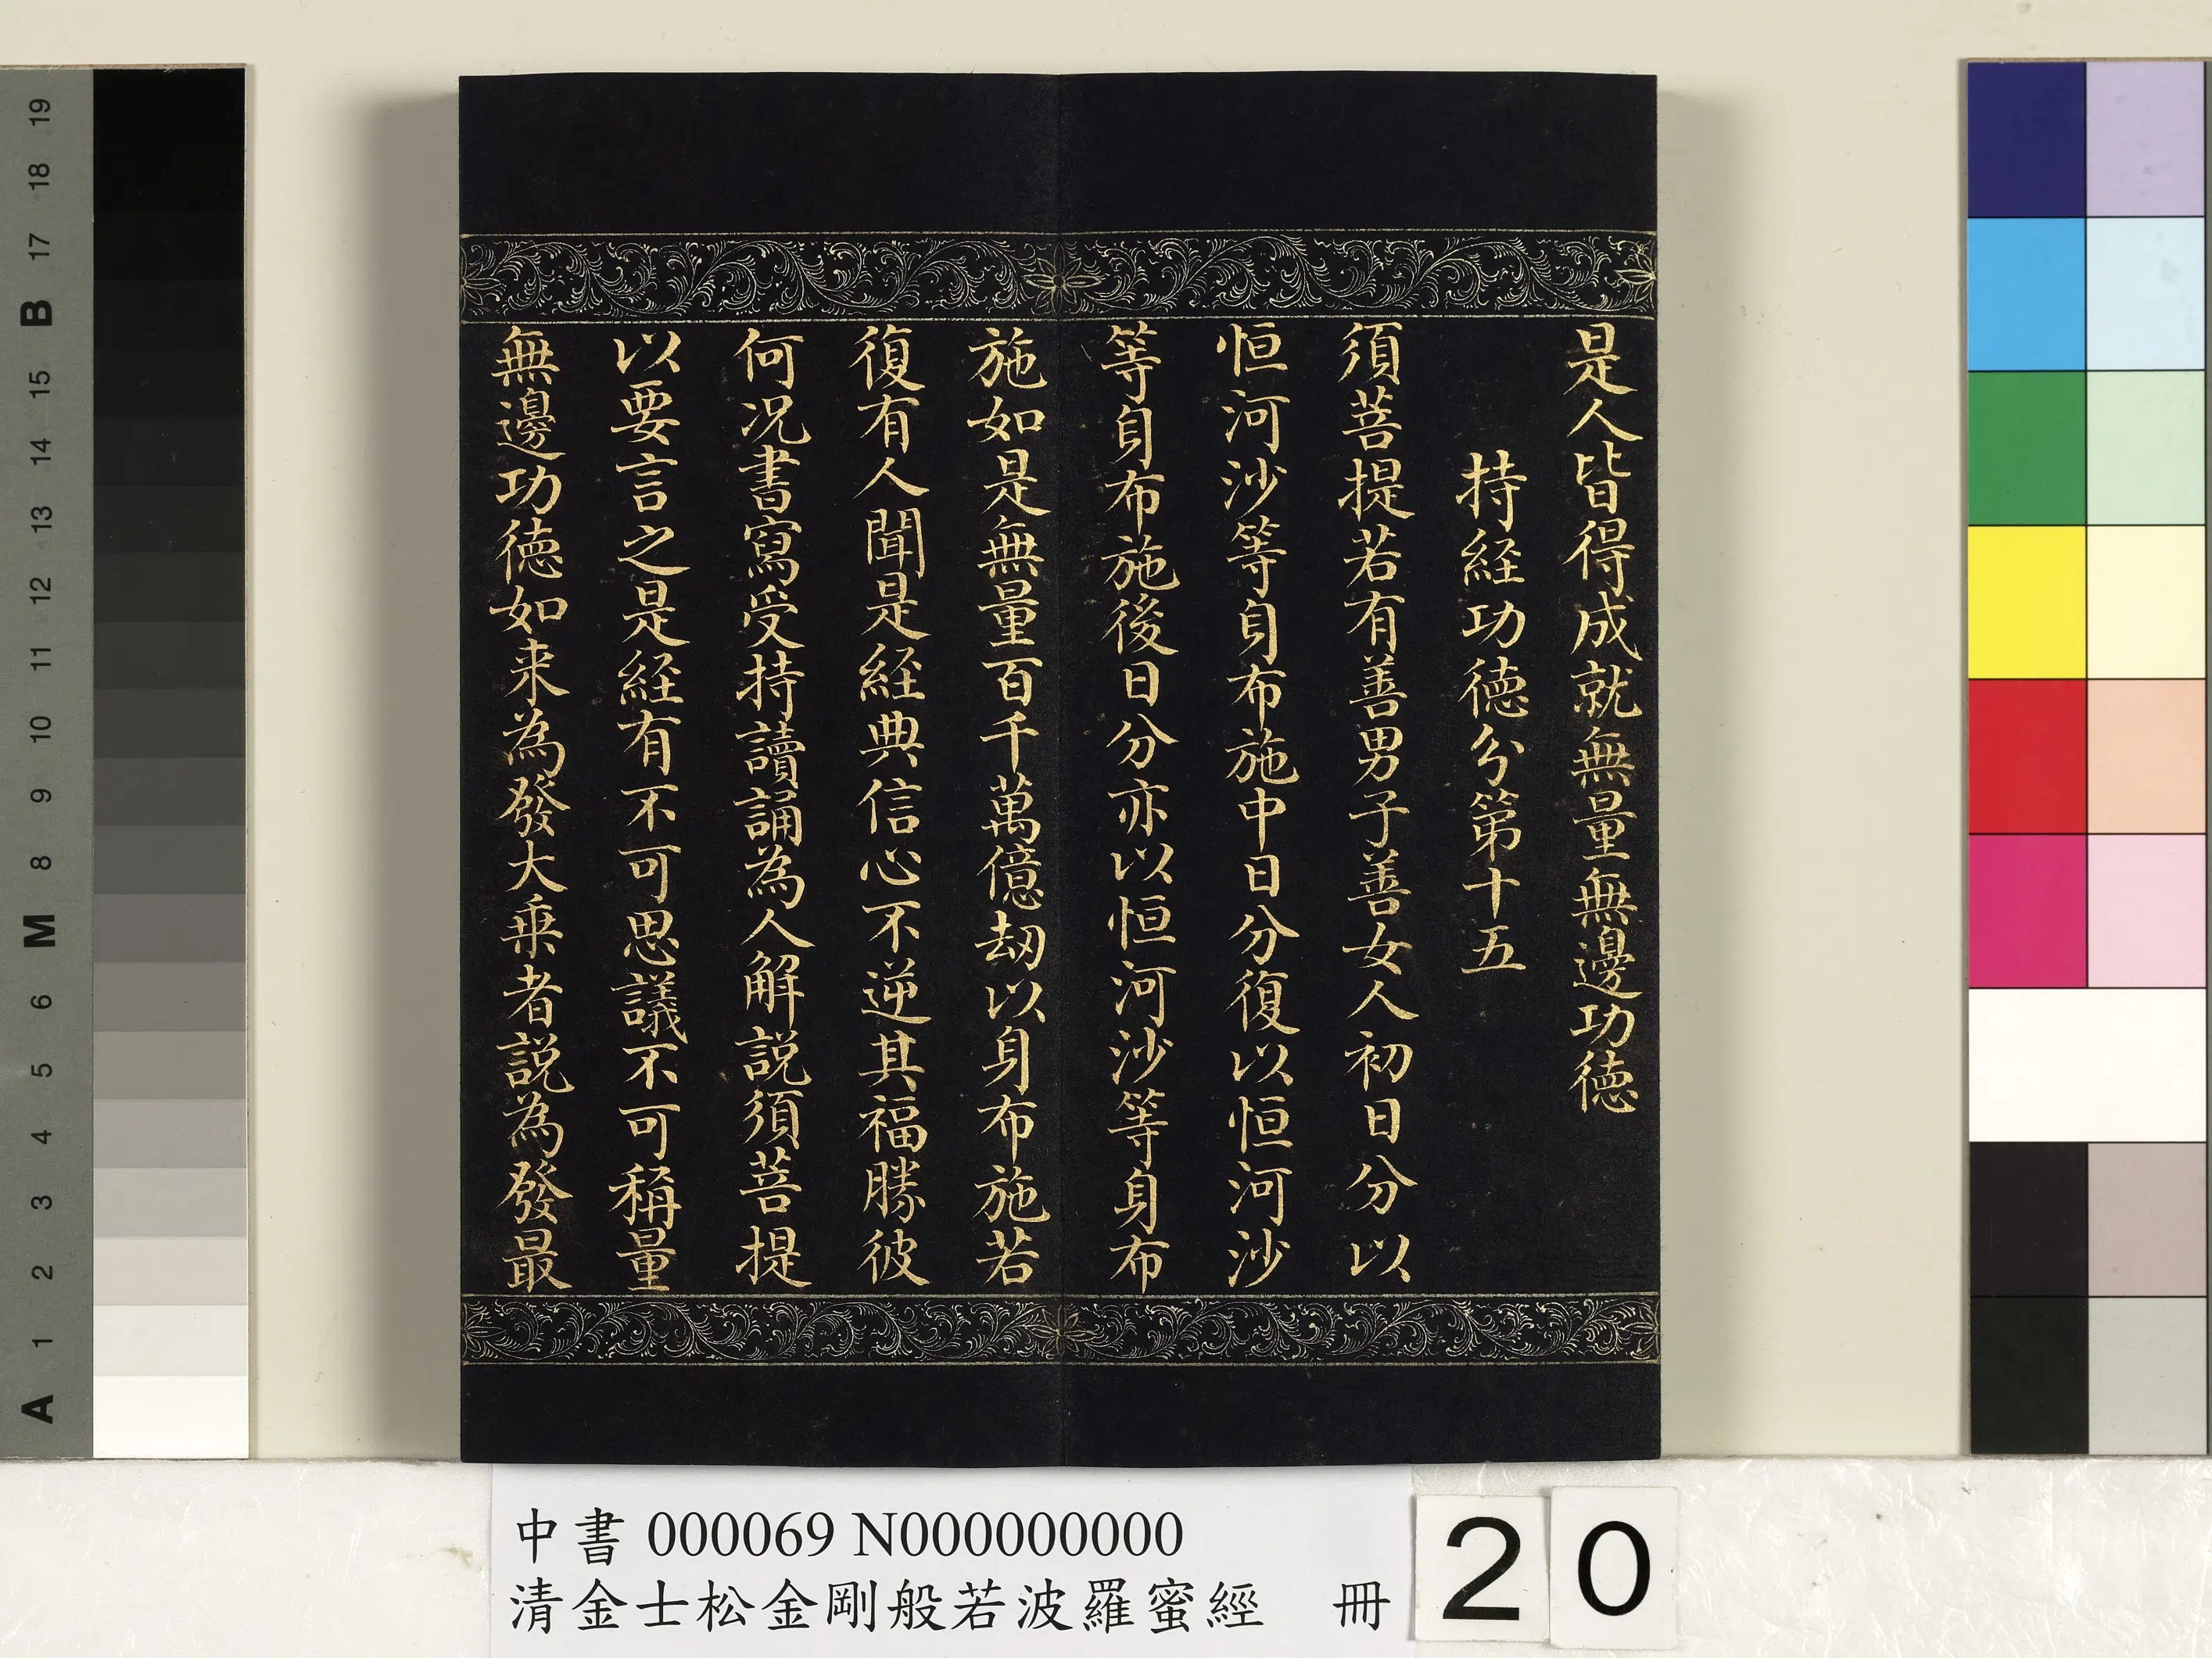 是人皆得成就無量無邊功德
持経功德分第十五
須菩提若有善男子善女人初日分以
恒河沙等身布施中日分復以恒河沙
等身布施後日分亦以恒河沙等身布
施如是無量百千萬億劫以身布施若
復有人聞是経典信心不逆其福勝彼
何况書寫受持讀誦為人解説須菩提
以要言之是経有不可思議不可稱量
無邊功德如来為發大乗者説為發最
中書 000069 N000000000
清金士松金剛般若波羅蜜經 冊
20
19
18
17
B
15
14
13
12
11
10
9
8
M
6
5
4
3
2
1
A